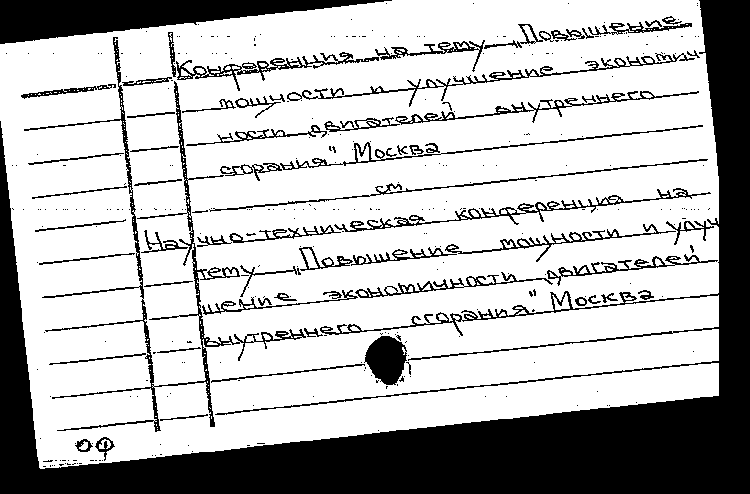 Конференция на тему „Повышение
мощности и улучшение экономич-
ности двигателей внутреннего
сгорания". Москва
см.
Научно-техническая конференция на
тему „Повышение мощности и улуч
шение экономичности двигателей
внутреннего сгорания". Москва